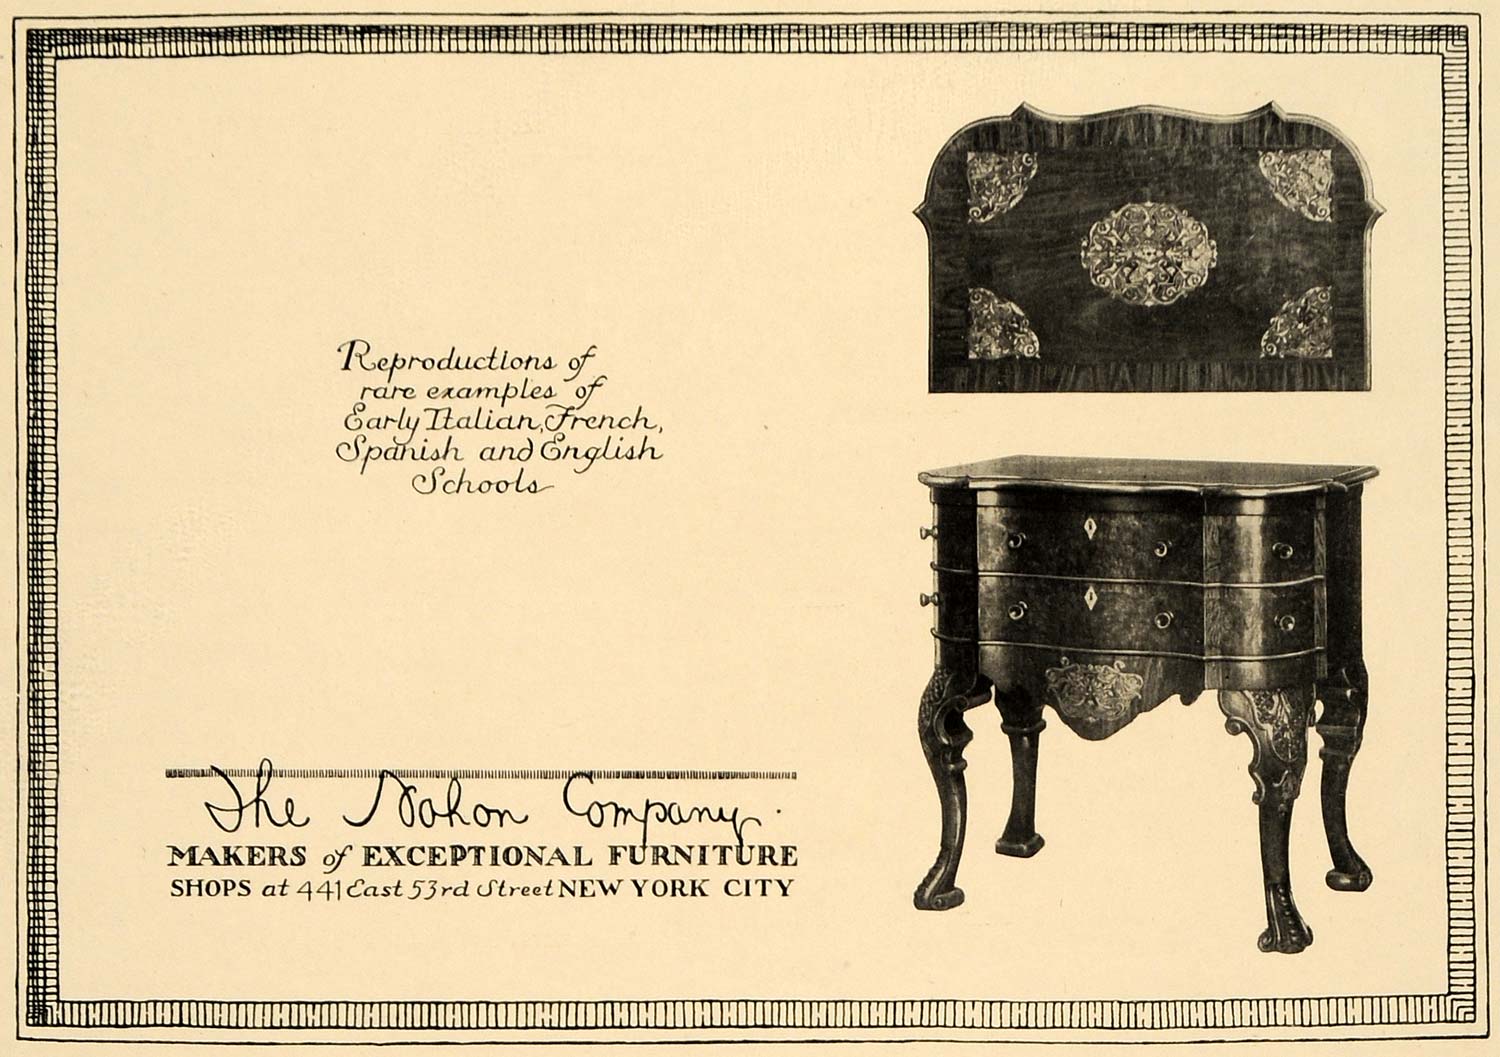 Reproductions of
rare examples of
Early Italian, French,
Spanish and English
Schools
The Nahon Company.
MAKERS of EXCEPTIONAL FURNITURE
SHOPS at 441 East 53rd Street NEW YORK CITY